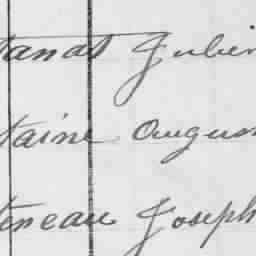 tanat Julien
taine Augus
teneau Joseph